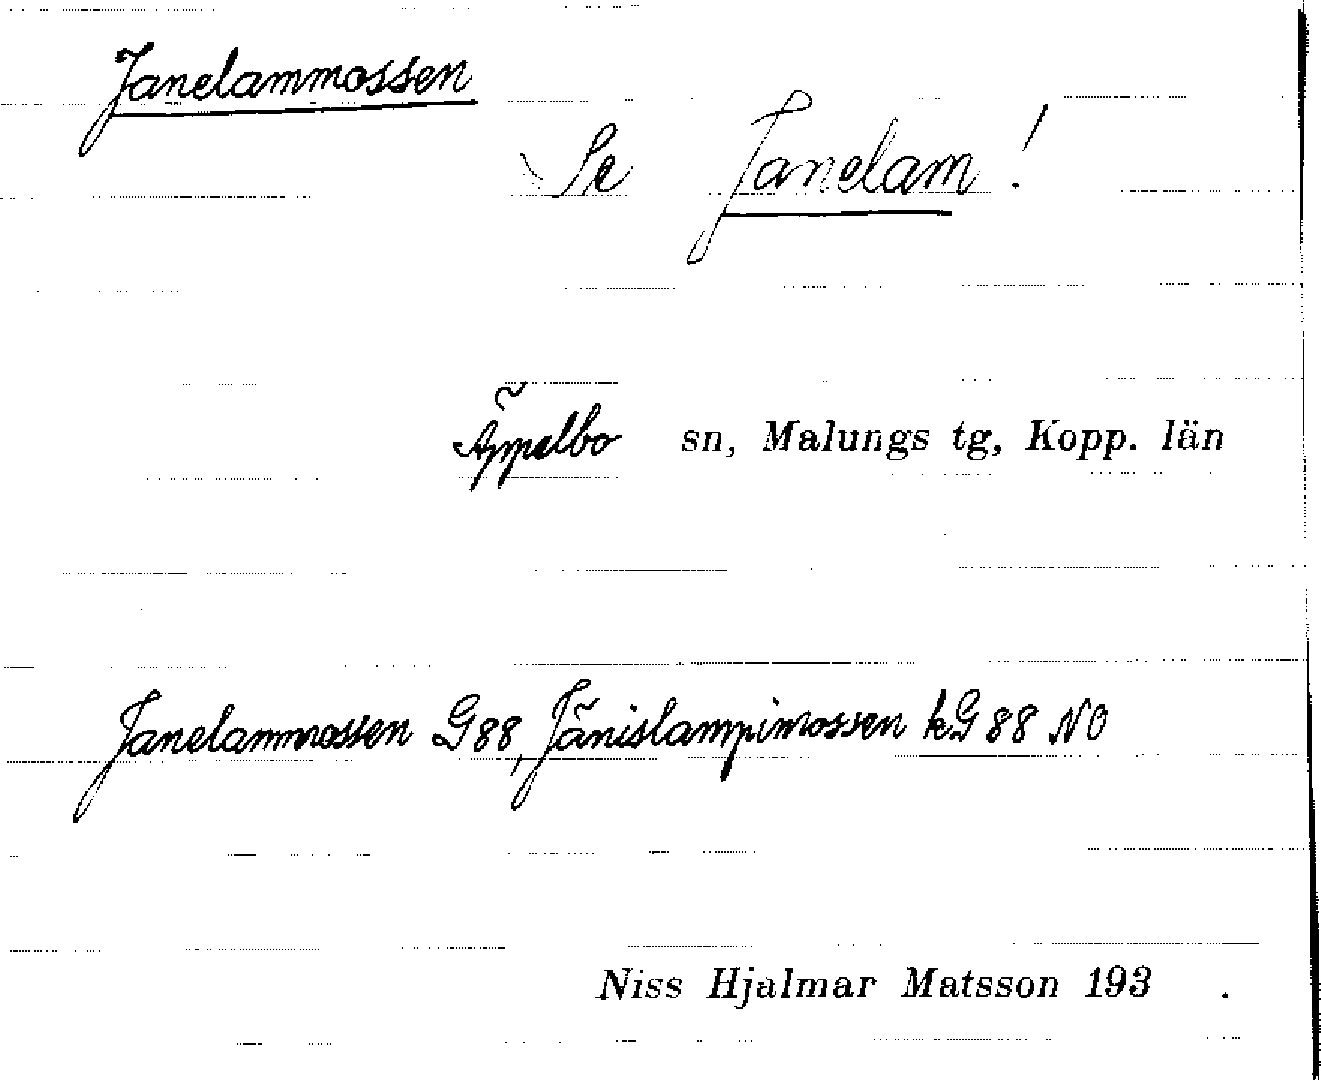 Janelammossen
Se Janelam!
Äppelbo sn, Malungs tg, Kopp. län
Janelammossen G88, Jänislampimossen kG88 NO
Niss Hjalmar Matsson 193 .